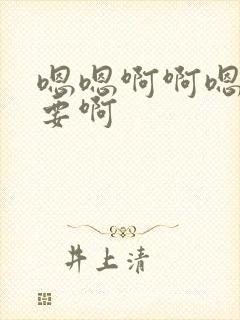 嗯嗯啊啊嗯
要啊
井上清